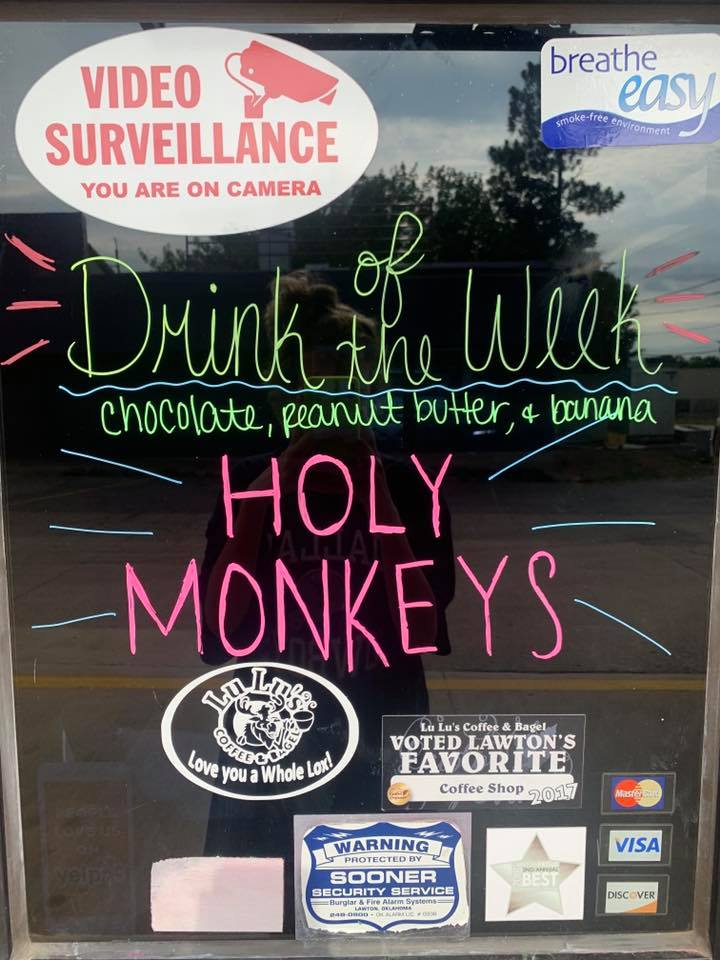 VIDEO
SURVEILLANCE
YOU ARE ON CAMERA
breathe
easy
smoke-free environment
Drink of the Week
chocolate, peanut butter, & banana
HOLY
MONKEYS
Lu Lu's
COFFEE & BAGEL
Love you a Whole Lox!
Lu Lu's Coffee & Bagel
VOTED LAWTON'S
FAVORITE
Coffee Shop 2017
MasterCard
VISA
DISCOVER
WARNING
PROTECTED BY
SOONER
SECURITY SERVICE
Burglar & Fire Alarm Systems
LAWTON, OKLAHOMA
248-0800 • OK ALARM LIC #
2ND ANNUAL
BEST
yelp